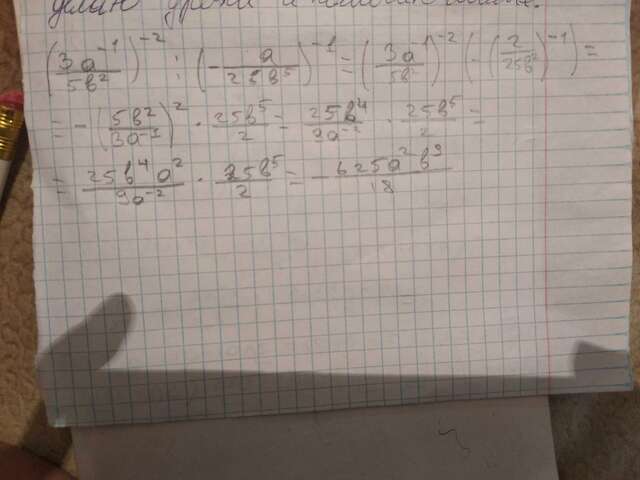 делаю уроки и
(3a⁻¹/5b²)⁻² : (-a/25b⁵)⁻¹ = (3a⁻¹/5b)⁻² (-(2/25b)⁻¹) =
= -(5b²/3a⁻¹)² · 25b⁵/2 = 25b⁴/9a⁻² · 25b⁵/2 =
= 25b⁴a²/9a⁻² · 25b⁵/2 = -625a²b⁹/18